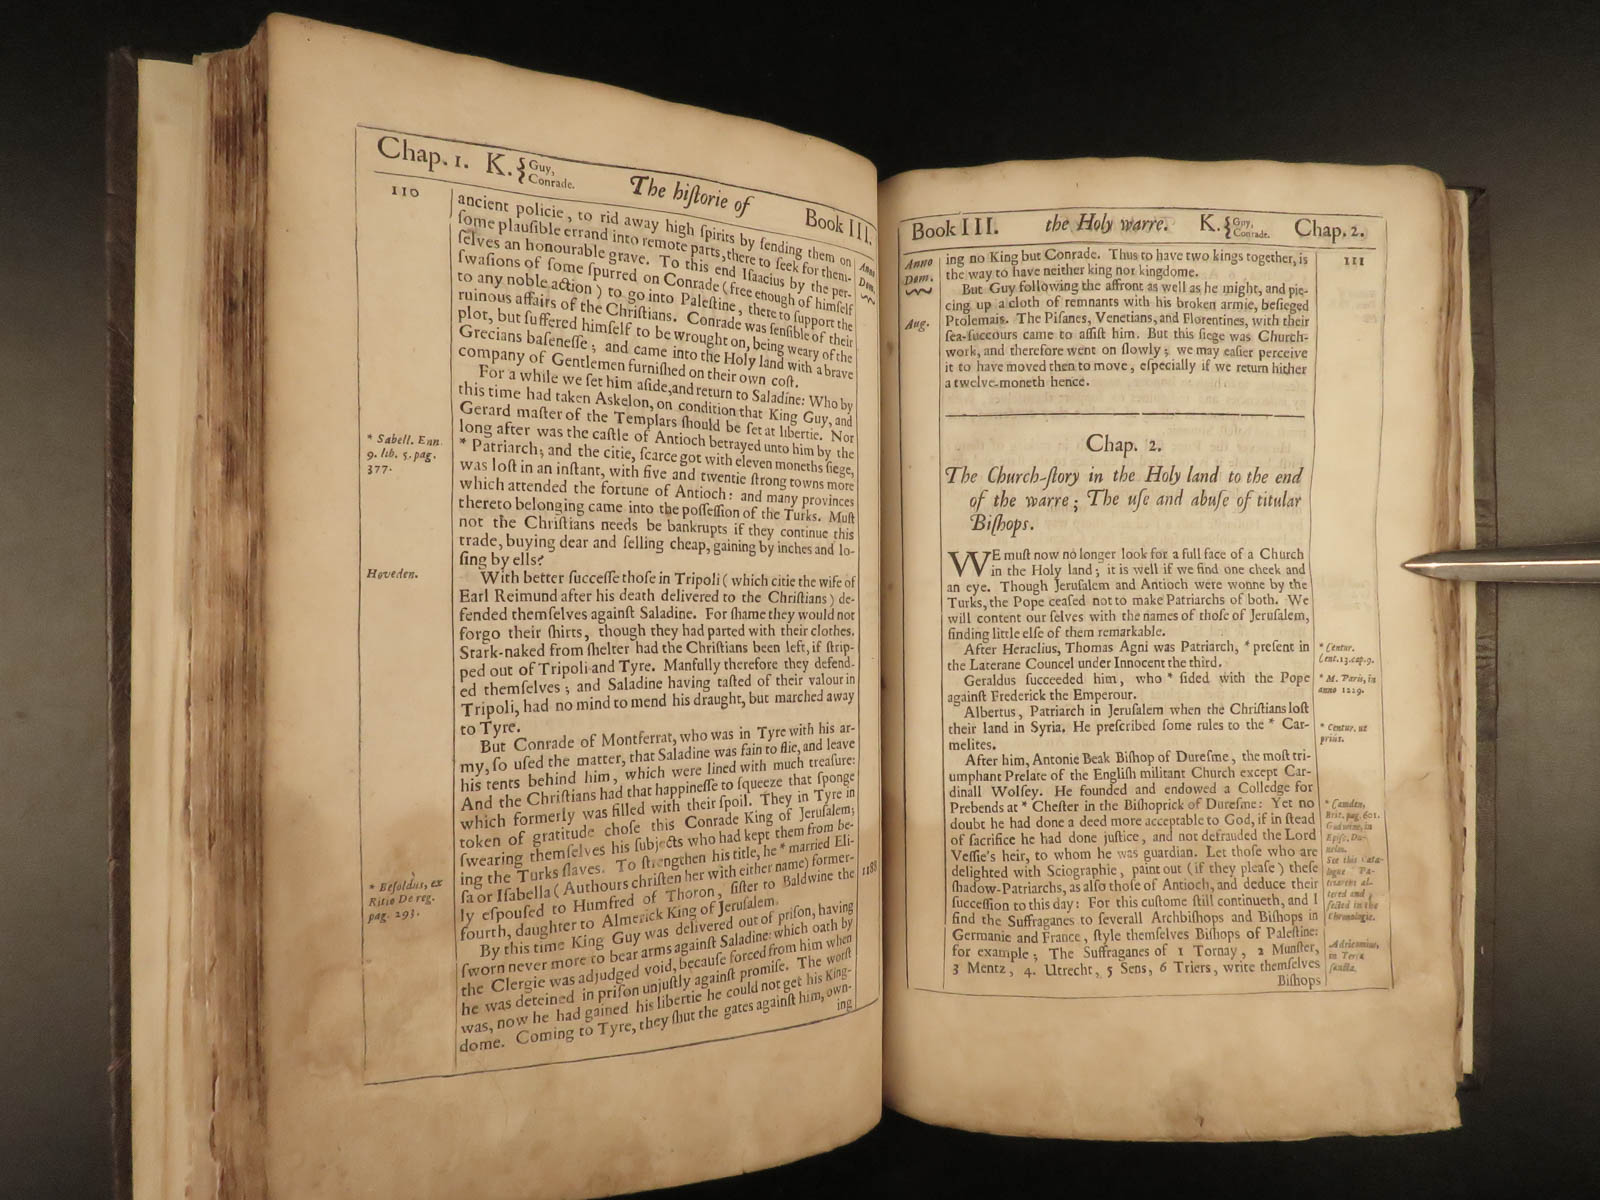 Chap. 1. K. { Guy, Conrade. The hiſtorie of Book III.
110
Anno Dom.
ancient policie, to rid away high ſpirits by ſending them on
ſome plauſible errand into remote parts, there to ſeek for them-
ſelves an honourable grave. To this end Iſaacius by the per-
ſwaſions of ſome ſpurred on Conrade (free enough of himſelf
to any noble action) to go into Paleſtine, there to ſupport the
ruinous affairs of the Chriſtians. Conrade was ſenſible of their
plot, but ſuffered himſelf to be wrought on, being weary of the
Grecians baſeneſſe; and came into the Holy land with a brave
company of Gentlemen furniſhed on their own coſt.
For a while we ſet him aſide, and return to Saladine: Who by
this time had taken Askelon, on condition that King Guy, and
Gerard maſter of the Templars ſhould be ſet at libertie. Nor
long after was the caſtle of Antioch betrayed unto him by the
* Patriarch; and the citie, ſcarce got with eleven moneths ſiege,
was loſt in an inſtant, with five and twentie ſtrong towns more
which attended the fortune of Antioch: and many provinces
thereto belonging came into the poſſeſſion of the Turks. Muſt
not the Chriſtians needs be bankrupts if they continue this
trade, buying dear and ſelling cheap, gaining by inches and lo-
ſing by ells?
* Sabell. Enn.
9. lib. 5. pag.
377.
With better ſucceſſe thoſe in Tripoli (which citie the wife of
Earl Reimund after his death delivered to the Chriſtians) de-
fended themſelves againſt Saladine. For ſhame they would not
forgo their ſhirts, though they had parted with their clothes.
Stark-naked from ſhelter had the Chriſtians been left, if ſtrip-
ped out of Tripoli and Tyre. Manfully therefore they defend-
ed themſelves; and Saladine having taſted of their valour in
Tripoli, had no mind to mend his draught, but marched away
to Tyre.
Hoveden.
But Conrade of Montferrat, who was in Tyre with his ar-
my, ſo uſed the matter, that Saladine was fain to flie, and leave
his tents behind him, which were lined with much treaſure:
And the Chriſtians had that happineſſe to ſqueeze that ſponge
which formerly was filled with their ſpoil. They in Tyre in
token of gratitude choſe this Conrade King of Jeruſalem;
ſwearing themſelves his ſubjects who had kept them from be-
ing the Turks ſlaves. To ſtrengthen his title, he * married Eli-
ſa or Iſabella (Authours chriſten her with either name) former-
ly eſpouſed to Humfred of Thoron, ſiſter to Baldwine the
fourth, daughter to Almerick King of Jeruſalem.
* Beſoldus, ex
Ritio De reg.
pag. 293.
1188
By this time King Guy was delivered out of priſon, having
ſworn never more to bear arms againſt Saladine: which oath by
the Clergie was adjudged void, becauſe forced from him when
he was deteined in priſon unjuſtly againſt promiſe. The worſt
was, now he had gained his libertie he could not get his King-
dome. Coming to Tyre, they ſhut the gates againſt him, own-
ing
Book III. the Holy warre. K. { Guy, Conrade. Chap. 2.
Anno
Dom.
111
ing no King but Conrade. Thus to have two kings together, is
the way to have neither king nor kingdome.
But Guy following the affront as well as he might, and pie-
cing up a cloth of remnants with his broken armie, beſieged
Ptolemais. The Piſanes, Venetians, and Florentines, with their
ſea-ſuccours came to aſſiſt him. But this ſiege was Church-
work, and therefore went on ſlowly; we may eaſier perceive
it to have moved then to move, eſpecially if we return hither
a twelve-moneth hence.
Aug.
Chap. 2.
The Church-ſtory in the Holy land to the end
of the warre; The uſe and abuſe of titular
Biſhops.
WE muſt now no longer look for a full face of a Church
in the Holy land; it is well if we find one cheek and
an eye. Though Jeruſalem and Antioch were wonne by the
Turks, the Pope ceaſed not to make Patriarchs of both. We
will content our ſelves with the names of thoſe of Jeruſalem,
finding little elſe of them remarkable.
After Heraclius, Thomas Agni was Patriarch, * preſent in
the Laterane Councel under Innocent the third.
Geraldus ſucceeded him, who * ſided with the Pope
againſt Frederick the Emperour.
Albertus, Patriarch in Jeruſalem when the Chriſtians loſt
their land in Syria. He preſcribed ſome rules to the * Car-
melites.
After him, Antonie Beak Biſhop of Dureſme, the moſt tri-
umphant Prelate of the Engliſh militant Church except Car-
dinall Wolſey. He founded and endowed a Colledge for
Prebends at * Cheſter in the Biſhoprick of Dureſme: Yet no
doubt he had done a deed more acceptable to God, if in ſtead
of ſacrifice he had done juſtice, and not defrauded the Lord
Veſſie's heir, to whom he was guardian. Let thoſe who are
delighted with Sciographie, paint out (if they pleaſe) theſe
ſhadow-Patriarchs, as alſo thoſe of Antioch, and deduce their
ſucceſſion to this day: For this cuſtome ſtill continueth, and I
find the Suffraganes to ſeverall Archbiſhops and Biſhops in
Germanie and France, ſtyle themſelves Biſhops of Paleſtine:
for example; The Suffraganes of 1 Tornay, 2 Munſter,
3 Mentz, 4. Utrecht, 5 Sens, 6 Triers, write themſelves
Biſhops
* Centur.
Cent. 13. cap. 9.
* M. Paris, in
anno 1229.
* Centur. ut
prius.
* Camden,
Brit. pag. 601.
Godwine, in
Epiſc. Du-
nelm.
See this Cata-
logue Pa-
triarchs al-
tered and
in the
Chronologie.
Adricomius,
in Terra
ſancta.